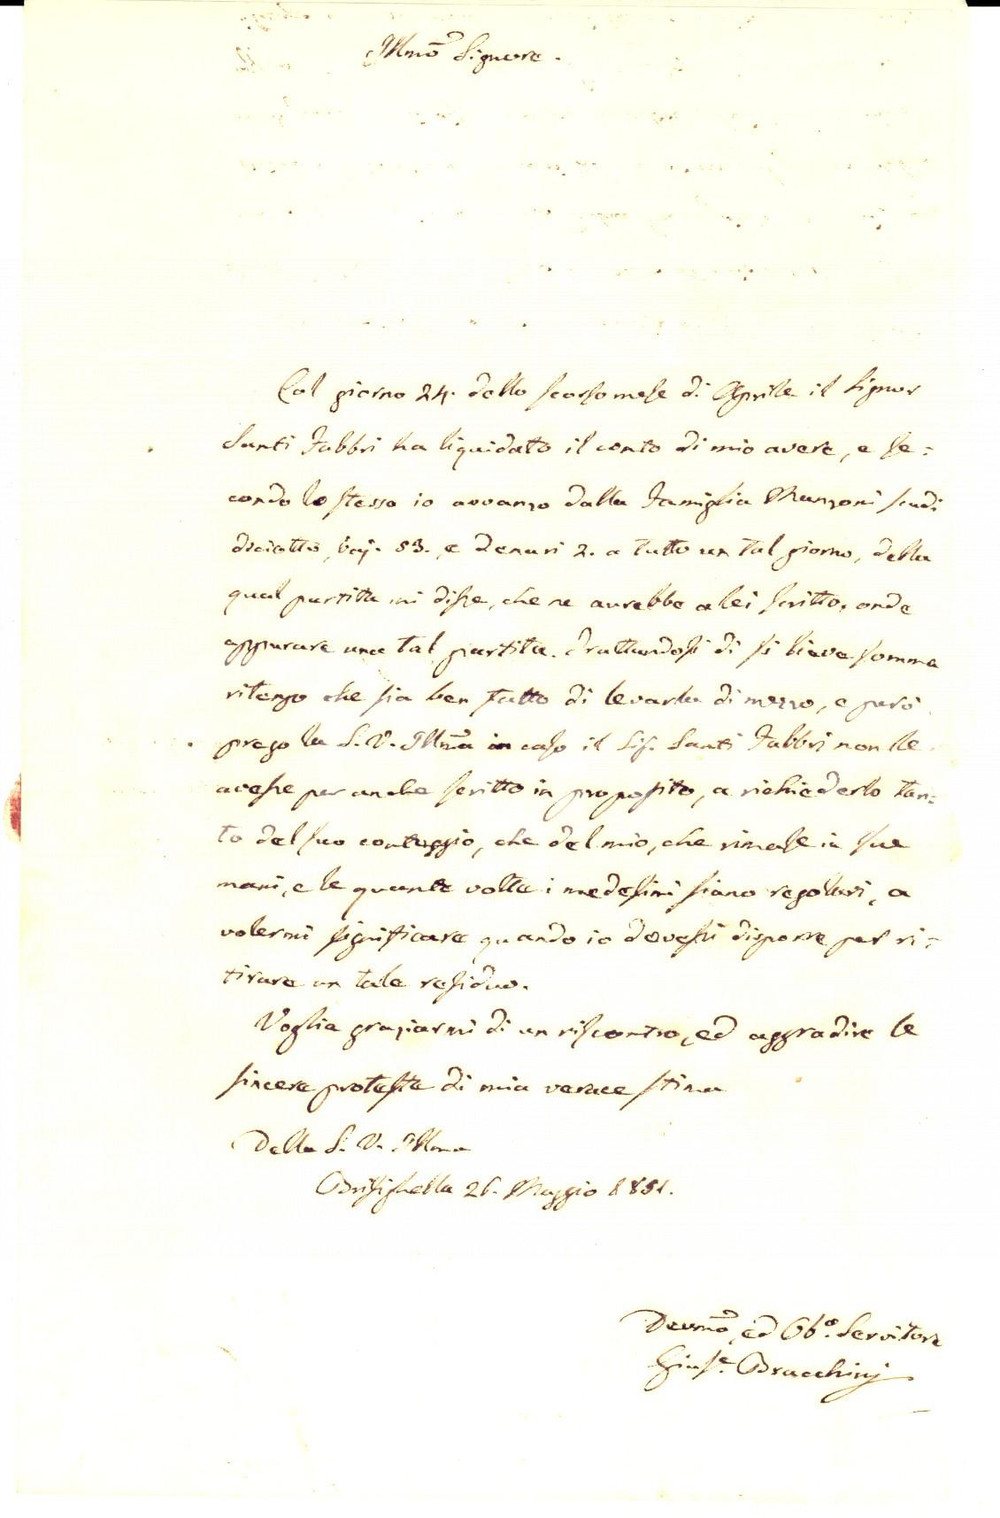 Illmo Signore.
Col giorno 24. dello scorso mese di Aprile il Signor
Santi Fabbri ha liquidato il conto di mio avere, e se=
condo lo stesso io avvanzo dalla Famiglia Manzoni scudi
diciotto, baj. 53., e Denari 2. a tutto un tal giorno, della
qual partita mi disse, che ne avrebbe a lei scritto, onde
appurare una tal partita. Trattandosi di sì lieve somma
ritengo che sia ben fatto di levarla di mezzo, e però
prego la S. V. Illma in caso il Sig. Santi Fabbri non le
avesse per anche scritto in proposito, a richiederlo tan=
to del suo conteggio, che del mio, che rimase in sue
mani, e le quante volte i medesimi siano regolari, a
volermi significare quando io dovessi disporre per ri=
tirare un tale residuo.
Voglia graziarmi di un riscontro, ed aggradire le
sincere proteste di mia verace stima
Della S. V. Illma
Brisighella 26. Maggio 1851.
Devmo, ed Obo. Servitore
Giuse. Bracchinj